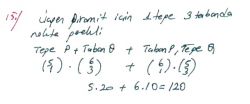 15) Üçgen piramit için 1 tepe 3 tabanda
nokta gerekli
Tepe P + Taban Q + Taban P, Tepe Q
(5 1) · (6 3) + (6 1) · (5 3)
5.20 + 6.10 = 120